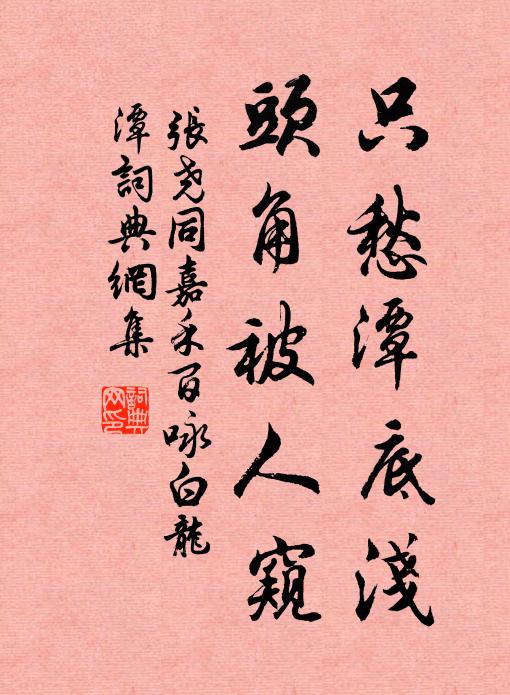 只愁潭底淺
頭角被人窺
張堯同嘉禾百咏白龍
潭詞典網集
詞典
网印